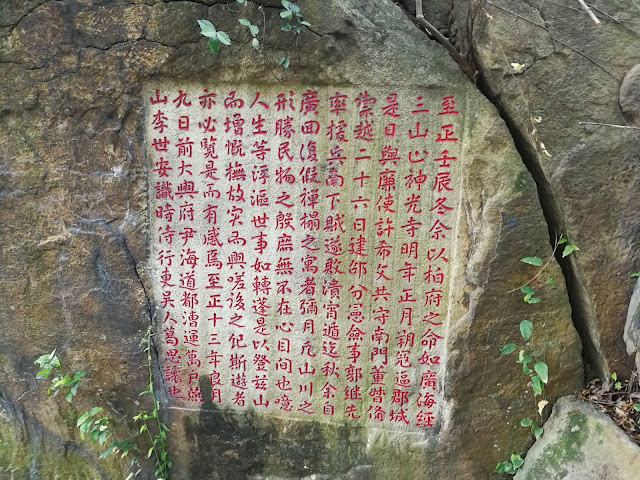 至正壬辰冬余以栢府之命如廣海經
三山㞢神光寺明年正月朔寇逼郡城
是日與廉使許希文共守南門董督備
禦越二十六日建邵分憲僉事郭継先
率援兵南下賊遂敗潰宵遁迄秋余自
廣回復假禪榻之寓者彌月凢山川之
形勝民物之殷庶無不在心目间也噫
人生等浮漚世事如轉蓬是以登兹山
而增慨撫故
而興嗟後之
斯遊者
亦必覽是而有感焉至正十三年良月
九日前大興府尹海道都漕運萬户燕
山李世安識時侍行吏吴人葛思讓也